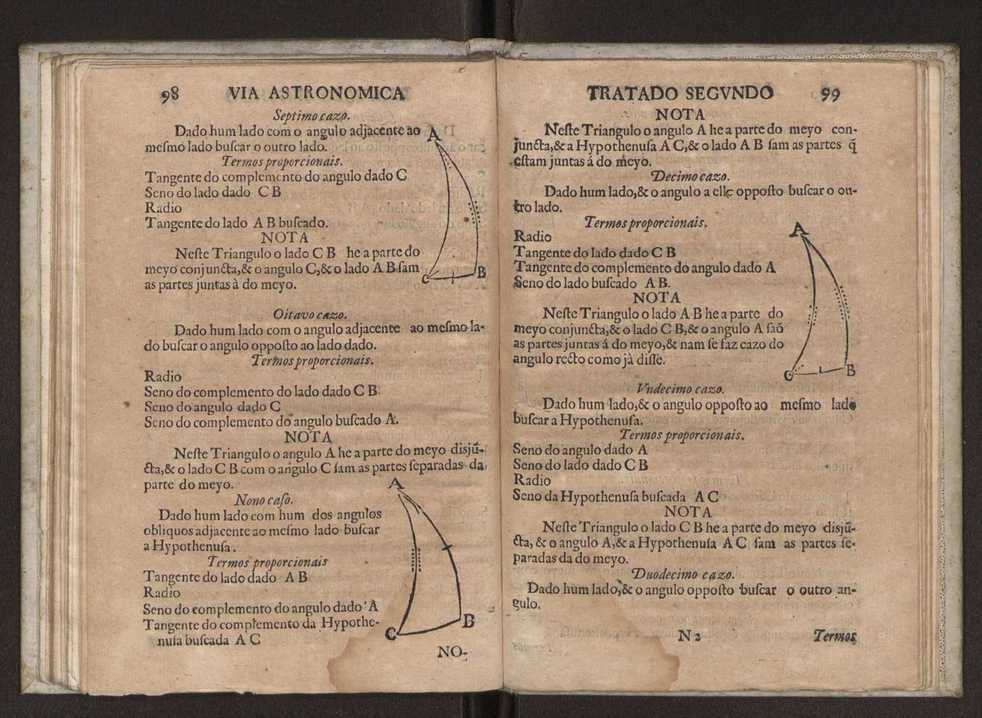 98 VIA ASTRONOMICA
Septimo cazo.
Dado hum lado com o angulo adjacente ao
mesmo lado buſcar o outro lado.
Termos proporcionais.
Tangente do complemento do angulo dado C
Seno do lado dado C B
Radio
Tangente do lado A B buſcado.
NOTA
Neſte Triangulo o lado C B he a parte do
meyo conjuncta,& o angulo C,& o lado A B ſam
as partes juntas à do meyo.
A
C
B
Oitavo cazo.
Dado hum lado com o angulo adjacente ao meſmo la-
do buſcar o angulo oppoſto ao lado dado.
Termos proporcionais.
Radio
Seno do complemento do lado dado C B
Seno do angulo dado C
Seno do complemento do angulo buſcado A.
NOTA
Neſte Triangulo o angulo A he a parte do meyo disjũ-
cta,& o lado C B com o angulo C ſam as partes ſeparadas da
parte do meyo.
Nono caſo.
Dado hum lado com hum dos angulos
obliquos adjacente ao meſmo lado buſcar
a Hypothenuſa.
Termos proporcionais
Tangente do lado dado A B
Radio
Seno do complemento do angulo dado A
Tangente do complemento da Hypothe-
nuſa buſcada A C
A
C
B
NO-
TRATADO SEGVNDO 99
NOTA
Neſte Triangulo o angulo A he a parte do meyo con-
juncta,& a Hypothenuſa A C,& o lado A B ſam as partes q̃
eſtam juntas á do meyo.
Decimo cazo.
Dado hum lado,& o angulo a elle oppoſto buſcar o ou-
tro lado.
Termos proporcionais.
Radio
Tangente do lado dado C B
Tangente do complemento do angulo dado A
Seno do lado buſcado A B.
NOTA
Neſte Triangulo o lado A B he a parte do
meyo conjuncta,& o lado C B,& o angulo A ſaõ
as partes juntas á do meyo,& nam ſe faz cazo do
angulo recto como jà diſſe.
A
C
B
Vndecimo cazo.
Dado hum lado,& o angulo oppoſto ao meſmo lado
buſcar a Hypothenuſa.
Termos proporcionais.
Seno do angulo dado A
Seno do lado dado C B
Radio
Seno da Hypothenuſa buſcada A C
NOTA
Neſte Triangulo o lado C B he a parte do meyo disjũ-
cta, & o angulo A,& a Hypothenuſa A C ſam as partes ſe-
paradas da do meyo.
Duodecimo cazo.
Dado hum lado,& o angulo oppoſto buſcar o outro an-
gulo.
N 2 Termos